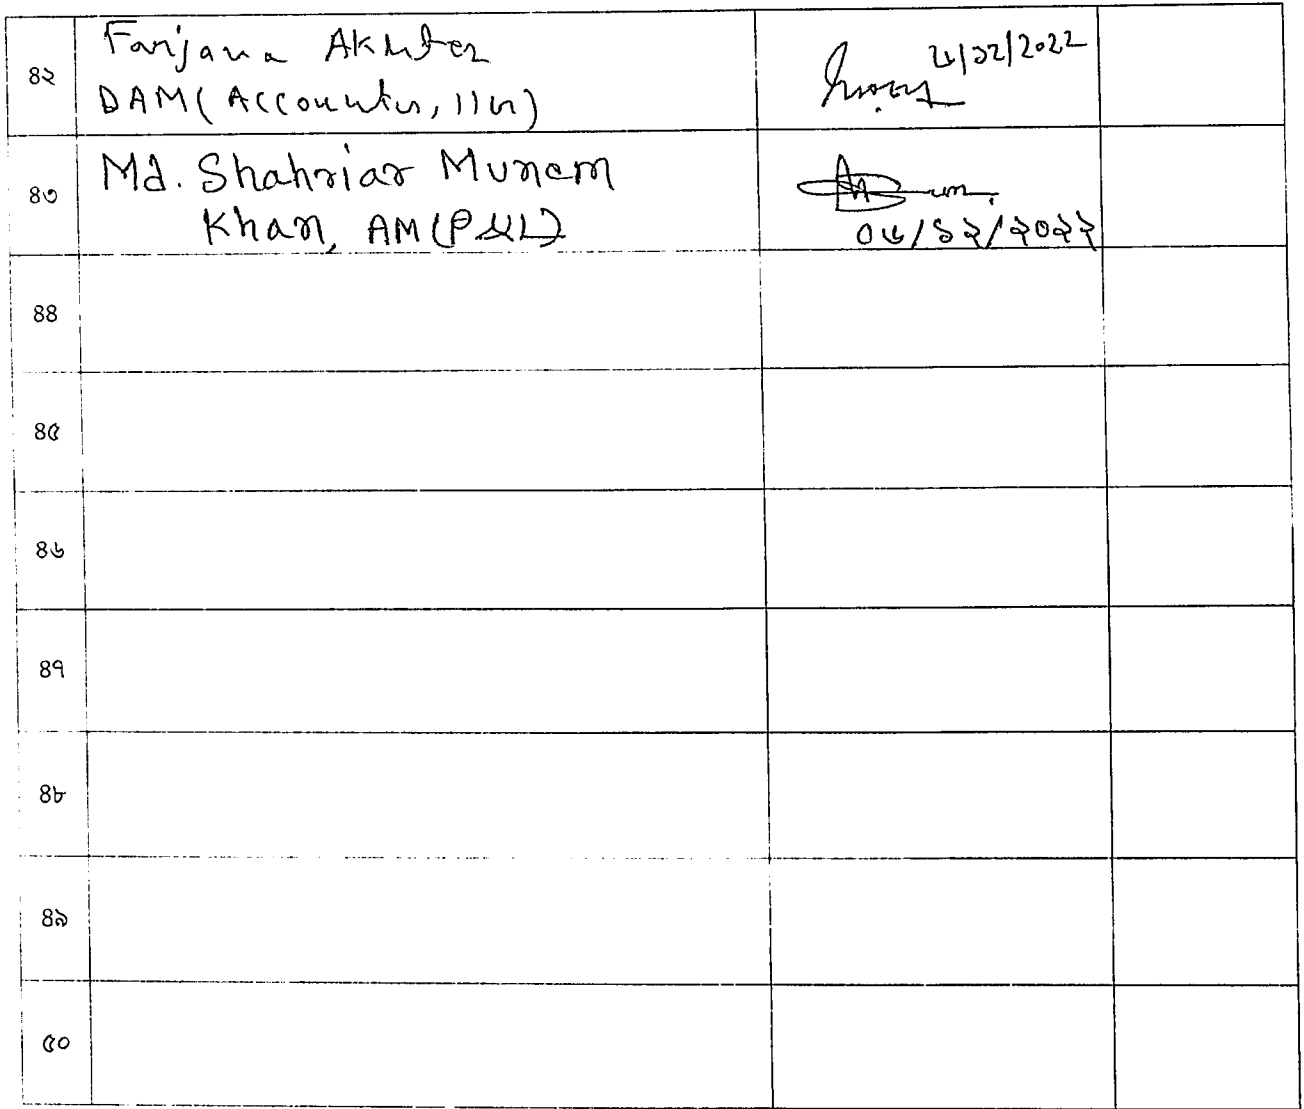 ৪২
Farjana Akhter
DAM (Accounts,
৬/১২/2022
৪৩
Md. Shahriar Munem
Khan, AM (P&L)
০৬/১২/২০২২
৪৪
৪৫
৪৬
৪৭
৪৮
৪৯
৫০